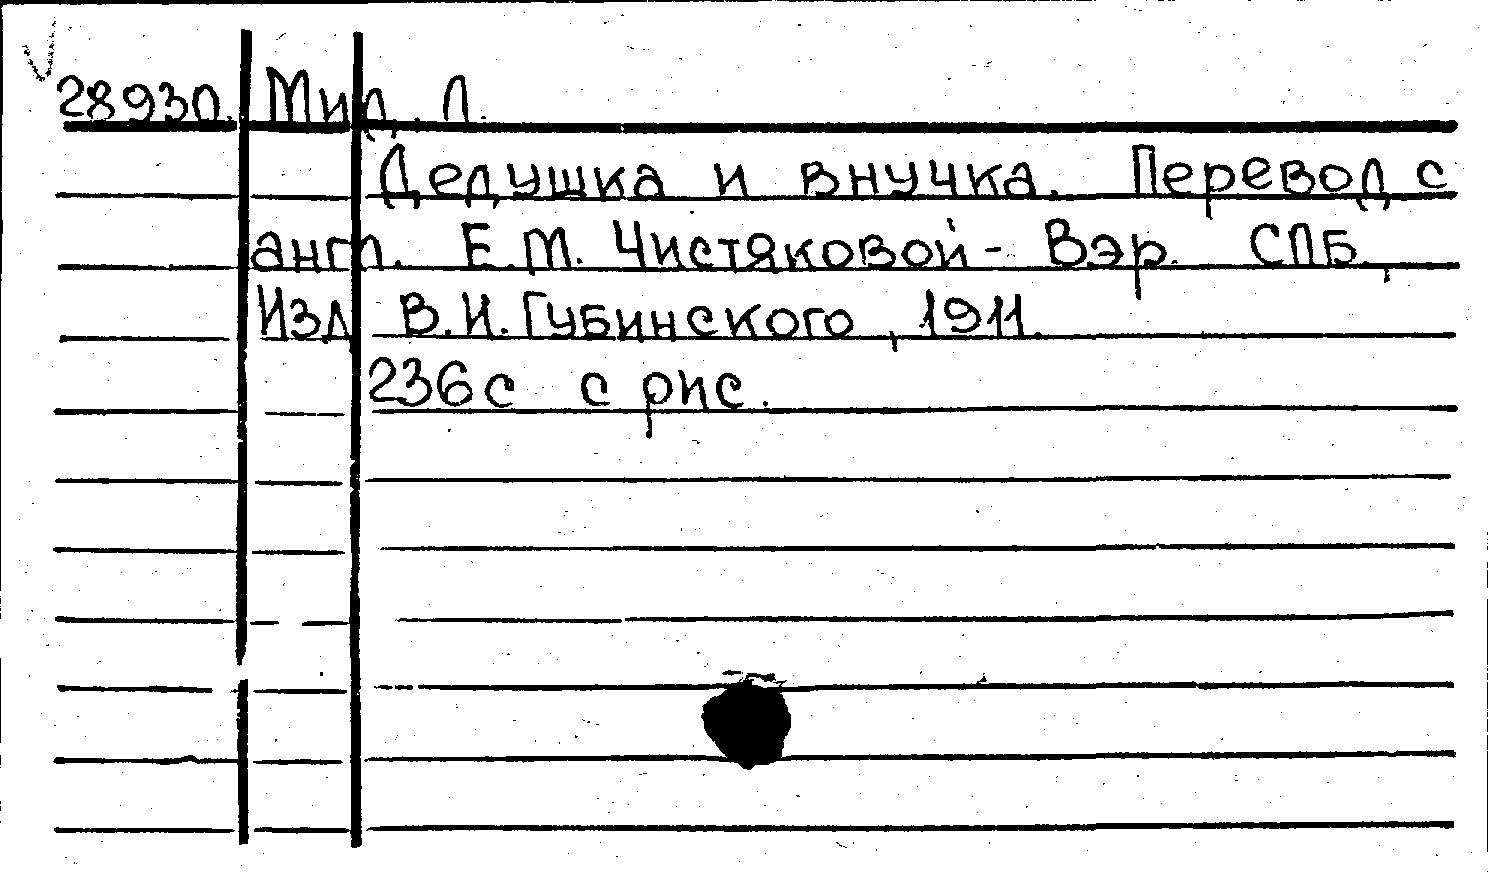 28930. Мид, Л.
Дедушка и внучка. Перевод с
англ. Е.М. Чистяковой - Вэр. СПБ.,
Изд. В.И. Губинского, 1911.
236с с рис.